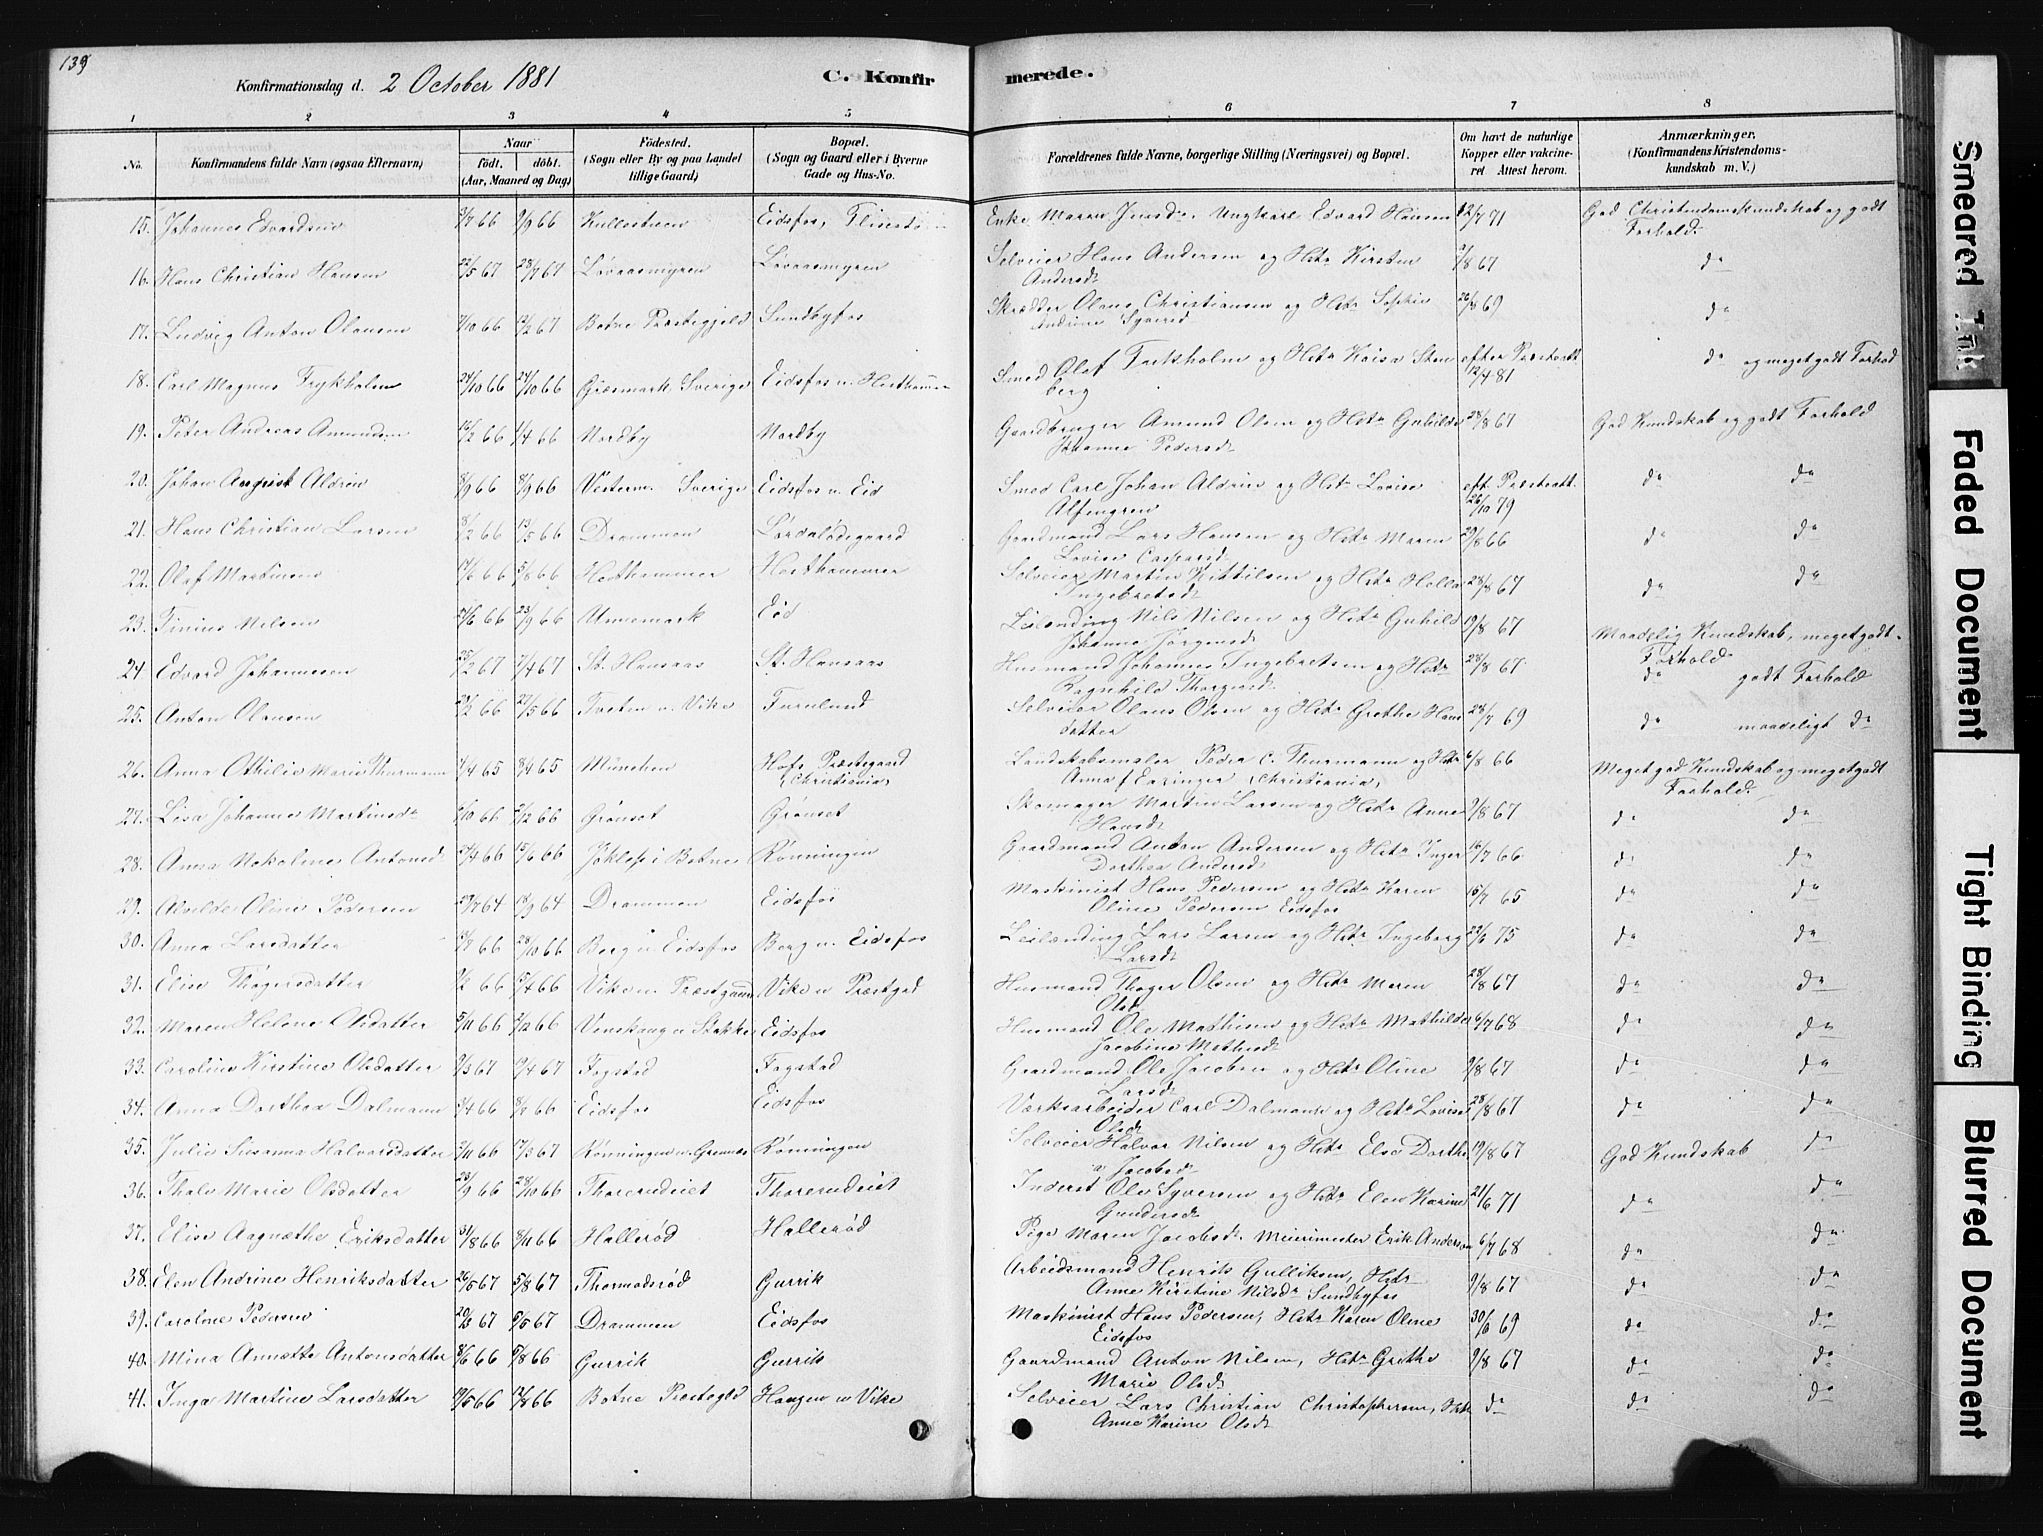 139
Konfirmationsdag d. 2 October 1881
C. Konfirmerede.
1 2 3 4 5 6 7 8
No. Konfirmandens fulde Navn (ogsaa Efternavn) Naar födt. döbt. (Aar, Maaned og Dag) Födested. (Sogn eller By og paa Landet tillige Gaard) Bopæl. (Sogn og Gaard eller i Byerne Gade og Hus-No. Forældrenes fulde Navne, borgerlige Stilling (Næringsvei) og Bopæl. Om havt de naturlige Kopper eller vakcineret Attest herom. Anmærkninger, (Konfirmandens Kristendomskundskab m. V.)
15. Johannes Edvardsen 66 9/9 66 Kullestuen Eidsfos, Enke Maren Jensdr. Ungkarl Edvard Hansen 12/7 71 God Christendomskundskab og godt Forhold
16. Hans Christian Hansen 22/5 67 28/7 67 Lövaasmyren Lövaasmyren Selveier Hans Andersen og Hstr Kirsten Andersdr 67 do
17. Ludvig Anton Olausen 7/10 66 12/2 67 Botne Præstegjeld Sundbyfos Skrædder Olaus Christiansen og Hstr Sophie Andrine Syversd 26/8 69 do
18. Carl Magnus Frykholm 24/10 66 24/10 66 Sverige Eidsfos u. Hosthammer Smed Olaf Frikholm og Hstr Kaisa Stenberg efter Præsteatt. 12/4 81 do og meget godt Forhold
19. Peter Andreas Amundsen 12/2 66 1/4 66 Nordby Nordby Gaardbruger Amund Olsen og Hstr Guhilde Johanne Pedersdr 28/8 67 God Kundskab og godt Forhold
20. Johan August Aldrin 8/9 66 8/9 66 Sverige Eidsfos u. Eid Smed Carl Johan Aldrin og Hstr Lovise Alfengren eft. Præsteatt. 26/10 79 do do
21. Hans Christian Larsen 8/2 66 13/5 66 Drammen Lørdalødegaard Gaardmand Lars Hansen og Hstr Maren Lovise Caspersd 29/8 66 do do
22. Olaf Martinsen 17/6 66 5/8 66 Hosthammer Hosthammer Selveier Martin Kittilsen og Hstr Helle Ingebretsdr 28/8 67 do do
23. Tinius Nilsen 24/6 66 23/9 66 Unnemark Eid Leilending Nils Nilsen og Hstr Guhild Johanne Jörgensd 19/8 67 Maadelig Kundskab, meget godt Forhold
24 Edvard Johannesen 25/2 67 7/4 67 St. Hansaas St. Hansaas Husmand Johannes Ingebretsen og Hstr Ragnhild Thorgersd. 28/8 67 do godt Forhold
25. Anton Olausen 66 27/5 66 Tveten u. Vike Furulund Selveier Olaus Olsen og Hstr Grethe Hansdatter 28/7 69 do maadeligt do
26. Anna Othilie Marie Thurmann 7/4 65 8/4 65 München Hofs Præstegaard (Christiania) Landskabsmaler Peder C. Thurmann og Hstr Anna f Christiania, 6/8 66 Meget god Kundskab og meget godt Forhold.
27. Lisa Johanne Martinsdr 6/10 66 2/12 66 Grönset Grönset Skomager Martin Larsen og Hstr Anne Hansdr 9/8 67 do do
28. Anna Nokoline Antonsd 24/4 66 15/6 66 Jöklep i Botne Rönningen Gaardmand Anton Andersen og Hstr Inger Dorthea Andersdr 16/7 66 do do
29. Alvilde Oline Pedersen 29/7 64 18/9 64 Drammen Eidsfos Maskinist Hans Pedersen og Hstr Karen Oline Pedersen Eidsfos 15/7 65 do do
30. Anna Larsdatter 66 28/10 66 Berg u. Eidsfos Berg u. Eidsfos Leilænding Lars Larsen og Hstr Ingeborg Larsdr 75 do do
31. Elise Thögersdatter 2/2 66 15/4 66 Vike u. Præstgaard Vike u Præstgd Husmand Thöger Olsen og Hstr Maren Olsdr 28/8 67 do do
32. Maren Helene Olsdatter 5/11 66 2/12 66 Eidsfos Husmand Ole Mathisen og Hstr Mathilde Jacobine Mathisdr 6/7 68 do do
33. Caroline Kirstine Olsdatter 2/3 67 19/4 67 Fogstad Fogstad Gaardmand Ole Jacobsen og Hstr Oline Larsdr 9/8 67 do do
34. Anna Dorthea Dalmann 3/4 66 8/7 66 Eidsfos Eidsfos Værksarbeider Carl Dalmann og Hstr Lovise Olsdr 28/8 67 do do
35. Julie Susanna Halvorsdatter 2/11 66 17/3 67 Rönningen u. Grennes Rönningen Selveier Halvor Nilsen og Hstr Else Dorthea Jacobsdr 19/8 67 God Kundskab do
36. Thale Marie Olsdatter 23/9 66 28/10 66 Thorerudeiet Thorerudeiet Inderst Ole Syversen og Hstr Elen Karine Gundersdr 21/6 71 do do
37. Elise Aagnæthe Eriksdatter 31/8 66 8/11 66 Halleröd Halleröd Pige Maren Jacobsdr. Meierimester Erik Andersen 6/7 68 do do
38. Elen Andrine Henriksdatter 26/5 67 5/8 67 Thormodsröd Gurrik Arbeidsmand Henrik Gulliksen, Hstr Anne Kirstine Nilsdr Sundbyfos 9/8 67 do do
39. Caroline Pedersen 67 67 Drammen Eidsfos Maskinist Hans Pedersen, Hstr Karen Oline Eidsfos 30/6 69 do do
40. Mina Annætte Antonsdatter 8/6 66 5/8 66 Gurrik Gurrik Gaardmand Anton Nilsen, Hstr Grethe Marie Olsdr 9/8 67 do do
41. Inga Martine Larsdatter 19/5 66 66 Botne Præstegjld Haugen u Vike Selveier Lars Christian Christophersen, Hstr Anne Karine Olsdr do do do
Smeared Ink
Faded Document
Tight Binding
Blurred Document